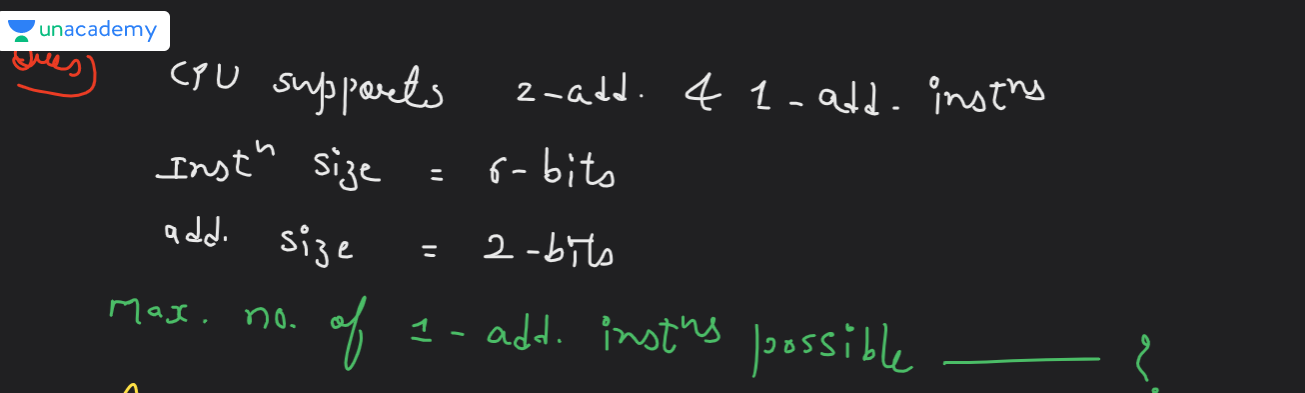 unacademy
Ques)
CPU supports 2-add. & 1-add. instns
Instn size = 6-bits
add. size = 2-bits
Max. no. of 1-add. instns possible ______ ?